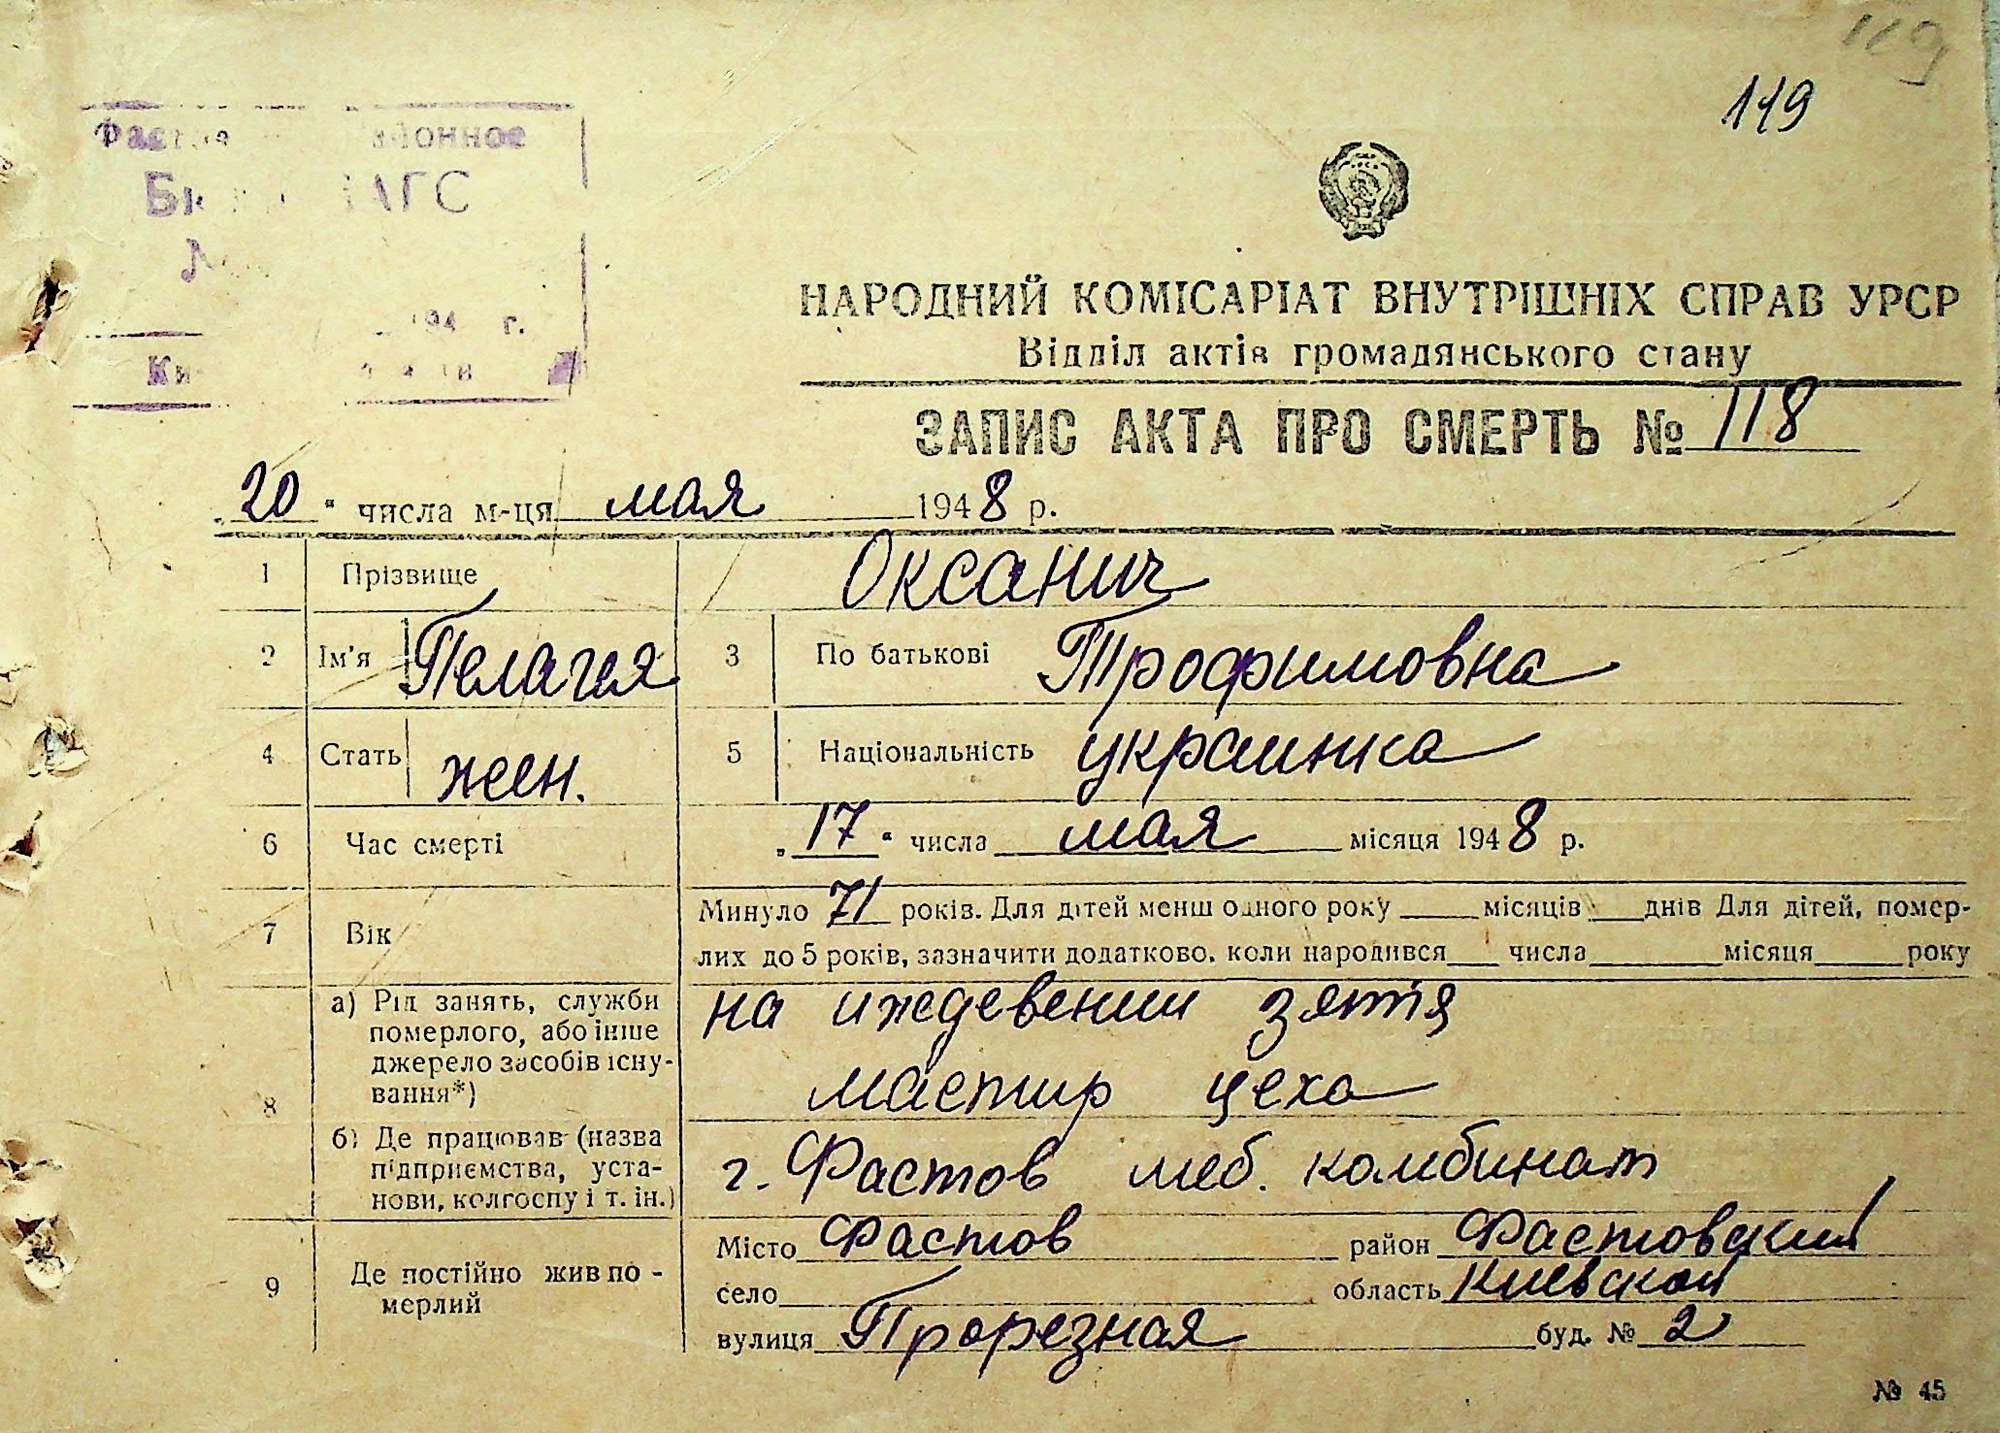 119
119
НАРОДНИЙ КОМІСАРІАТ ВНУТРІШНІХ СПРАВ УРСР
Відділ актів громадянського стану
ЗАПИС АКТА ПРО СМЕРТЬ № 118
„20“ числа м-ця мая 1948 р.
1 Прізвище Оксанич
2 Ім'я Пелагея 3 По батькові Трофимовна
4 Стать жен. 5 Національність украинка
6 Час смерті „17“ числа мая місяця 1948 р.
7 Вік Минуло 71 років. Для дітей менш одного року ____ місяців ____ днів Для дітей, помер-
лих до 5 років, зазначити додатково, коли народився ____ числа ____ місяця ____ року
8 а) Рід занять, служби
померлого, або інше
джерело засобів існу-
вання*)
на иждевении зятя
мастир цеха
б) Де працював (назва
підприємства, уста-
нови, колгоспу і т. ін.)
г. Фастов меб. комбинат
9 Де постійно жив по-
мерлий
Місто Фастов район Фастовский
село ____ область Киевской
вулиця Прорезная буд. № 2
№ 45